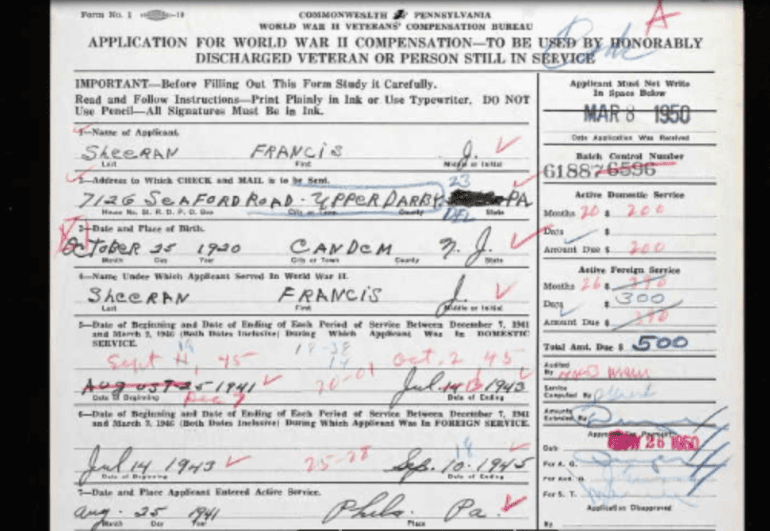 Form No. 1
COMMONWESLTH PENNSYLVANIA
WORLD WAR II VETERANS' COMPENSATION BUREAU
APPLICATION FOR WORLD WAR II COMPENSATION—TO BE USED BY HONORABLY
DISCHARGED VETERAN OR PERSON STILL IN SERVICE
A
IMPORTANT—Before Filling Out This Form Study it Carefully.
Read and Follow Instructions—Print Plainly in Ink or Use Typewriter. DO NOT
Use Pencil—All Signatures Must Be in Ink.
1—Name of Applicant.
SHEERAN FRANCIS J.
Last First Middle or Initial
2—Address to Which CHECK and MAIL is to be Sent.
23
7126 SEAFORD ROAD - UPPER DARBY PA
DEL
House No. St. R. D. P. O. Box City or Town County State
3—Date and Place of Birth.
OCTOBER 25 1920 CAMDEM N. J.
Month Day Year City or Town County State
4—Name Under Which Applicant Served In World War II.
SHEERAN FRANCIS J.
Last First Middle or Initial
5—Date of Beginning and Date of Ending of Each Period of Service Between December 7, 1941
and March 2, 1946 (Both Dates Inclusive) During Which Applicant Was In DOMESTIC
SERVICE.
Sept 11, 45 Oct. 2 45
AUGUST 25 1941 Jul 14 1943
Dec 7 20-01
Date of Beginning Date of Ending
6—Date of Beginning and Date of Ending of Each Period of Service Between December 7, 1941
and March 2, 1946 (Both Dates Inclusive) During Which Applicant Was In FOREIGN SERVICE.
Jul 14 1943 25-28 Sep. 10. 1945
Date of Beginning Date of Ending
7—Date and Place Applicant Entered Active Service.
Aug. 25 1941 Phila Pa.
Month Day Year Place
Applicant Must Not Write
In Space Below
MAR 8 1950
Date Application Was Received
Batch Control Number
618876596
Active Domestic Service
Months 20 $ 200
Days $
Amount Due $ 200
Active Foreign Service
Months 26 $ 390
Days $ 300
Amount Due $ 390
Total Amt. Due $ 500
Audited
By
Service
Computed By
Amounts
Extended By
Approved for Payment
Date 26 1950
For A. G.
For Aud. G.
For S. T.
Application Disapproved
By